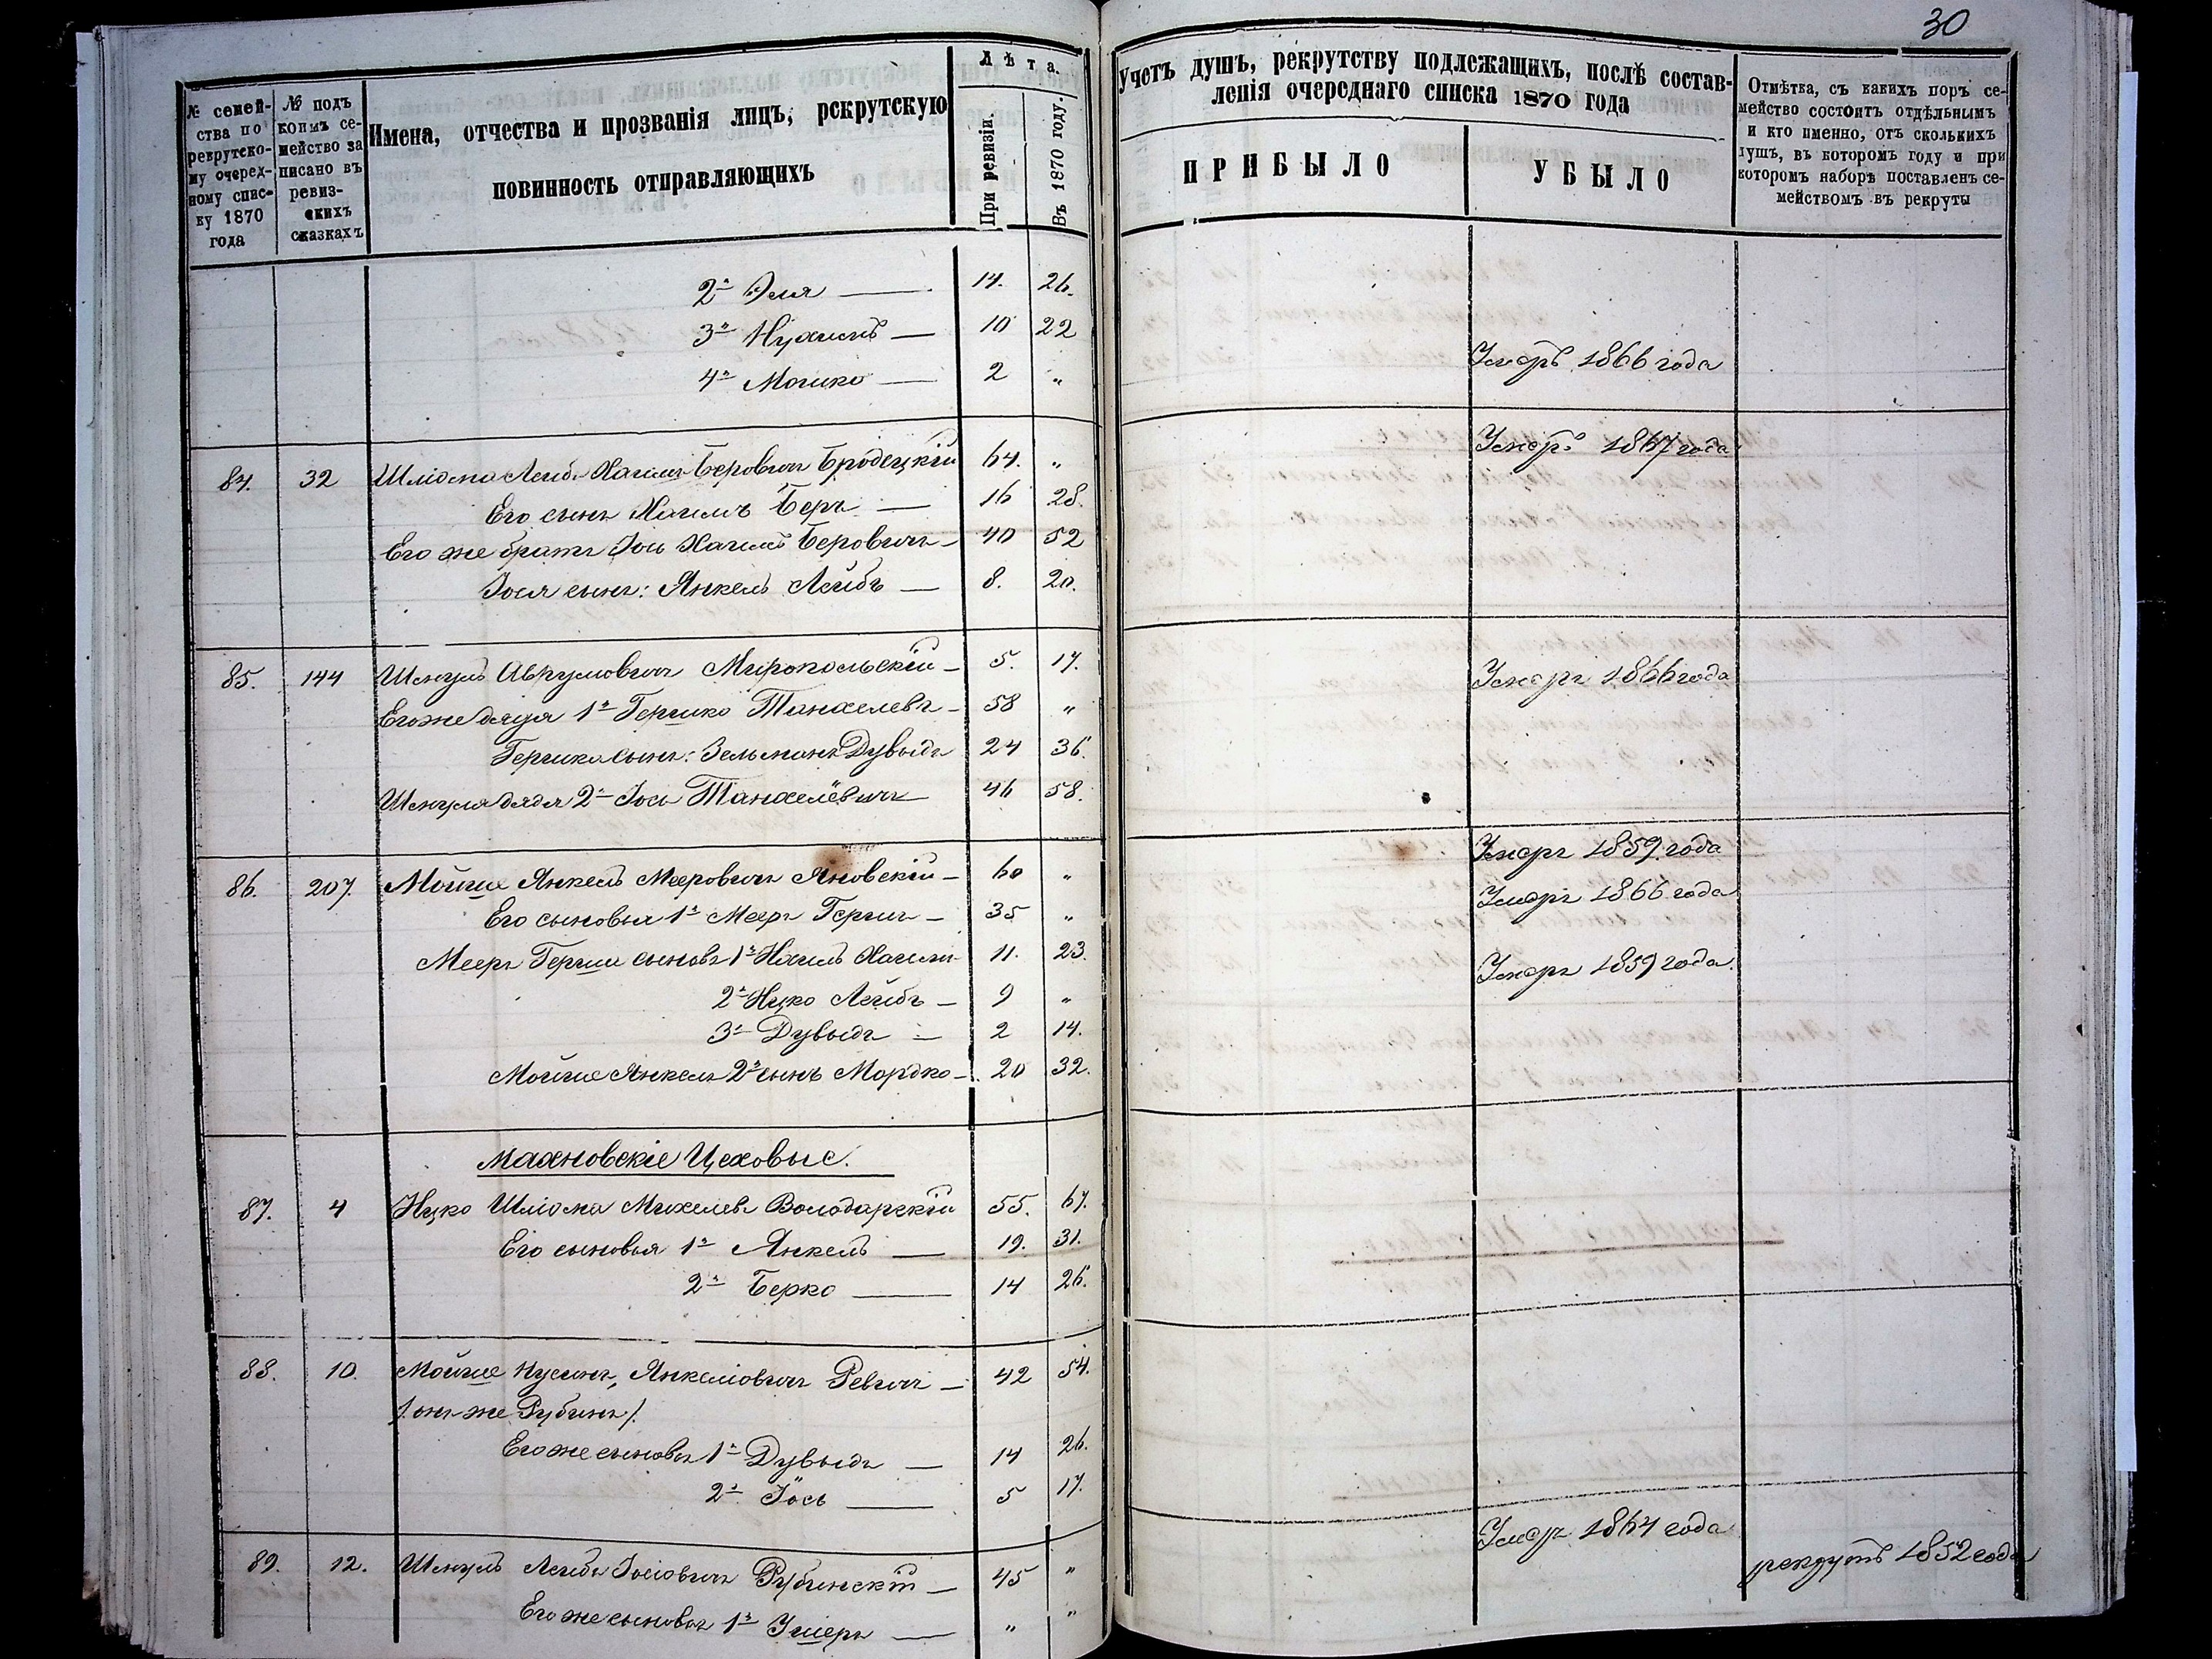 30
№ семей-
ства по
рекрутско-
му очеред-
ному спис-
ку 1870
года
№ подъ
коимъ се-
мейство за
писано въ
ревиз-
скихъ
сказкахъ
Имена, отчества и прозванія лицъ, рекрутскую
повинность отправляющихъ
Лѣта.
При ревизіи.
Въ 1870 году.
Учетъ душъ, рекрутству подлежащихъ, послѣ состав-
ленія очереднаго списка 1870 года
ПРИБЫЛО
УБЫЛО
Отмѣтка, съ какихъ поръ се-
мейство состоитъ отдѣльнымъ
и кто именно, отъ сколькихъ
душъ, въ которомъ году и при
которомъ наборѣ поставленъ се-
мействомъ въ рекруты
2й Эля — 14. 26.
3й Нухимъ — 10 22
4й Мошко — 2 „ Умеръ 1866 года
84. 32 Шліома Лейбъ Хаимъ Беровичъ Бродецкій 64. „ Умеръ 1867 года
Его сынъ Хаимъ Беръ — 16 28.
Его же братъ Іось Хаимъ Беровичъ — 40 52
Іося сынъ: Янкель Лейбъ — 8. 20.
85. 144 Шмуль Аврумовичъ Миропольскій — 5. 17.
Его же дядя 1й Гершко Танхелевъ — 58 „ Умеръ 1866 года
Гершка сынъ: Зельманъ Дувыдъ 24 36.
Шмуля дядя 2й Іось Танхелёвичъ 46 58.
86. 207. Мойше Янкель Мееровичъ Яновскій — 60 „ Умеръ 1859 года
Его сыновья 1й Мееръ Гершъ — 35 „ Умеръ 1866 года
Мееръ Герша сыновья 1й Хаимъ 11. 23.
2й Ицко Лейбъ — 9 „ Умеръ 1859 года.
3й Дувыдъ — 2 14.
Мойше Янкеля 2й сынъ Мордко — 20 32.
Махновскіе Цеховые.
87. 4 Ицко Шліома Михелевъ Володарскій 55. 67.
Его сыновья 1й Янкель — 19. 31.
2й Берко — 14 26.
88. 10. Мойше Нусинъ, Янкеліовичъ Ревичъ — 42 54.
/: онъ-же Рубинъ /:
Его же сыновья 1й Дувыдъ — 14 26.
2й Іось — 5 17.
89. 12. Шмуль Лейбъ Іосіовичъ Рубинскій — 45 „ Умеръ 1864 года
Его же сыновья 1й Ушеръ — „ „ рекрутъ 1852 года